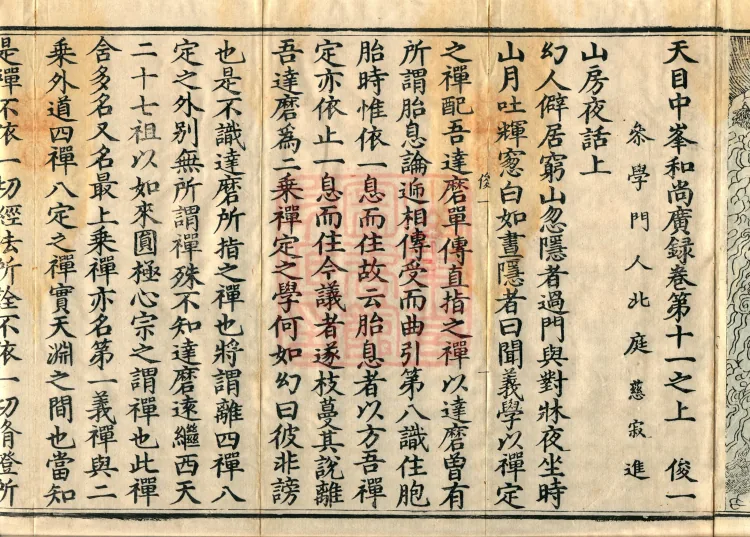 天目中峯和尚廣録卷第十一之上 俊一
參學門人北庭慈寂進
山房夜話上
幻人僻居窮山忽隱者過門與對牀夜坐時
山月吐輝窻白如晝隱者曰聞義學以禪定
俊一
之禪配吾達磨單傳直指之禪以達磨曾有
所謂胎息論遞相傳受而曲引第八識住胞
胎時惟依一息而住故云胎息者以方吾禪
定亦依止一息而住今議者遂枝蔓其說離
吾達磨為二乘禪定之學何如幻曰彼非謗
也是不識達磨所指之禪也將謂離四禪八
定之外別無所謂禪殊不知達磨遠繼西天
二十七祖以如來圓極心宗之謂禪也此禪
含多名又名最上乘禪亦名第一義禪與二
乘外道四禪八定之禪實天淵之間也當知
是禪不依一切經法所詮不依一切脩證所